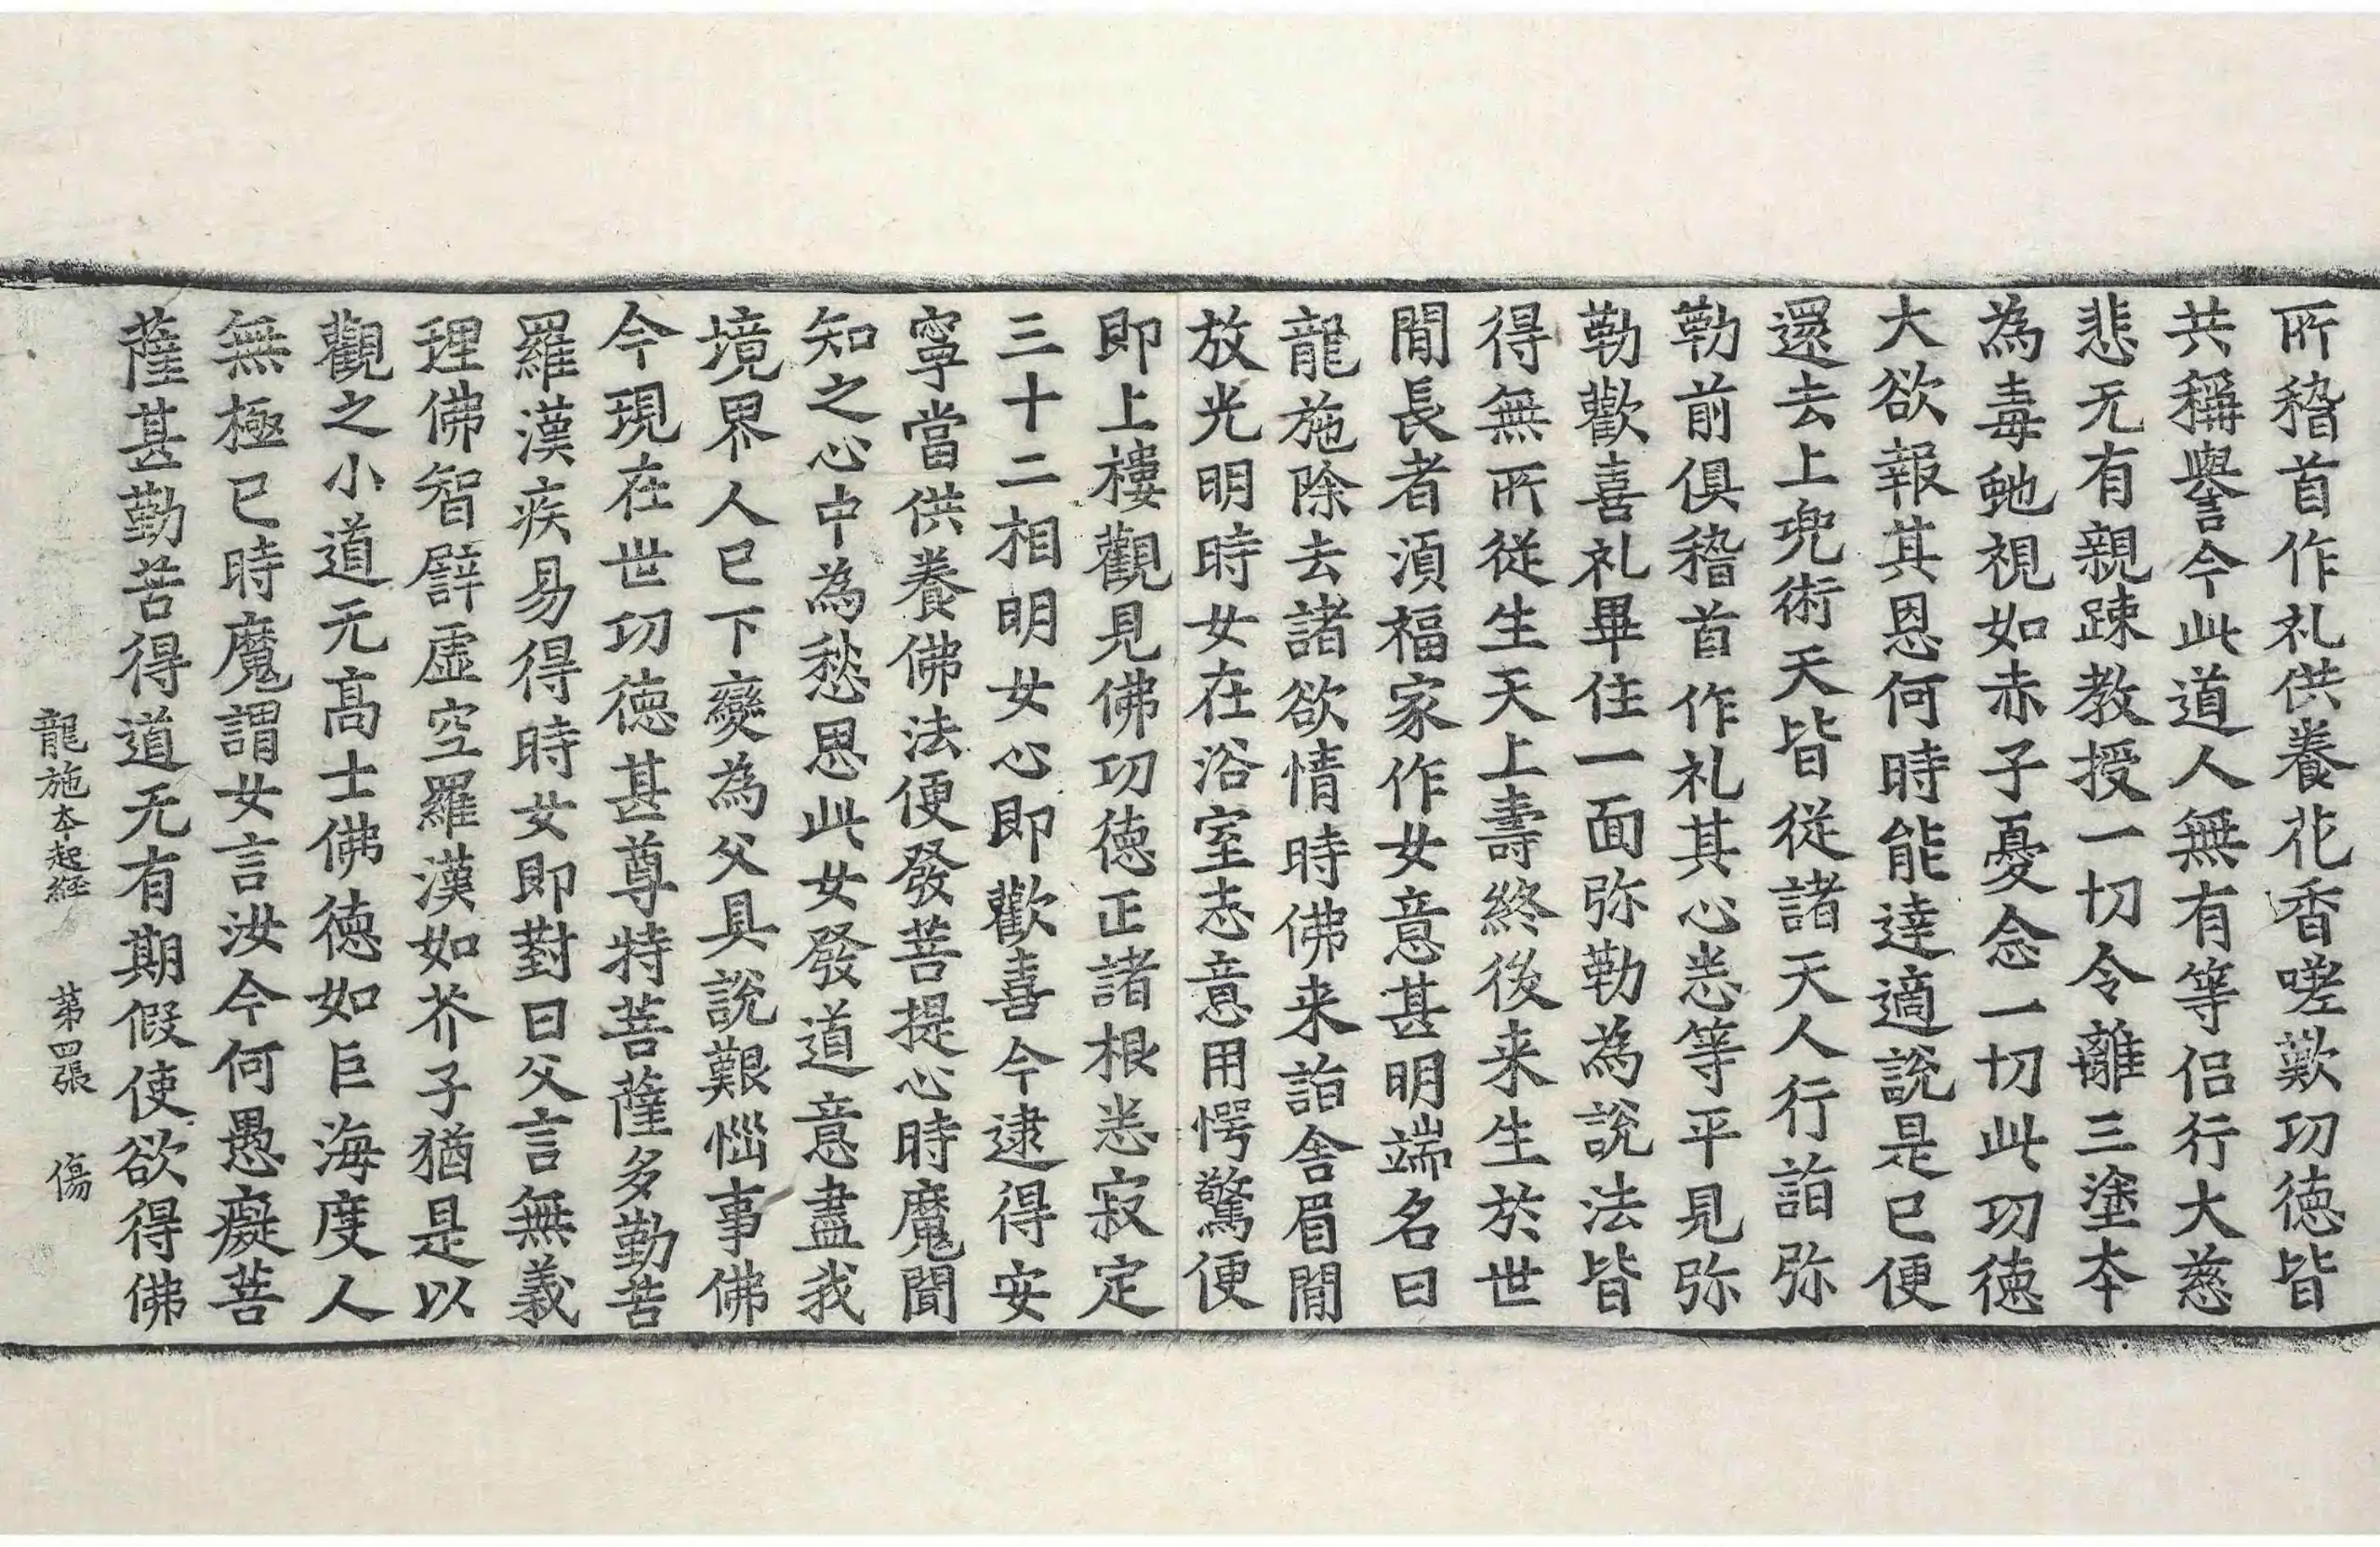 所稽首作礼供養花香嗟歎功徳皆
共稱譽今此道人無有等侶行大慈
悲无有親踈教授一切令離三塗本
為毒虵視如赤子憂念一切此功徳
大欲報其恩何時能達適說是已便
還去上兜術天皆從諸天人行詣弥
勒前俱稽首作礼其心悉等平見弥
勒歡喜礼畢住一面弥勒為說法皆
得無所從生天上壽終後来生於世
閒長者湏福家作女意甚明端名曰
龍施除去諸欲情時佛来詣舍眉閒
放光明時女在浴室志意用愕驚便
即上樓觀見佛功徳正諸根悉寂定
三十二相明女心即歡喜今逮得安
寧當供養佛法便發菩提心時魔聞
知之心中為愁思此女發道意盡我
境界人已下變為父具說艱惱事佛
今現在世功徳甚尊特菩薩多勤苦
羅漢疾易得時女即對曰父言無義
理佛智譬虛空羅漢如芥子猶是以
觀之小道无高士佛徳如巨海度人
無極已時魔謂女言汝今何愚癡菩
薩甚勤苦得道无有期假使欲得佛
龍施本起経 苐四張 傷